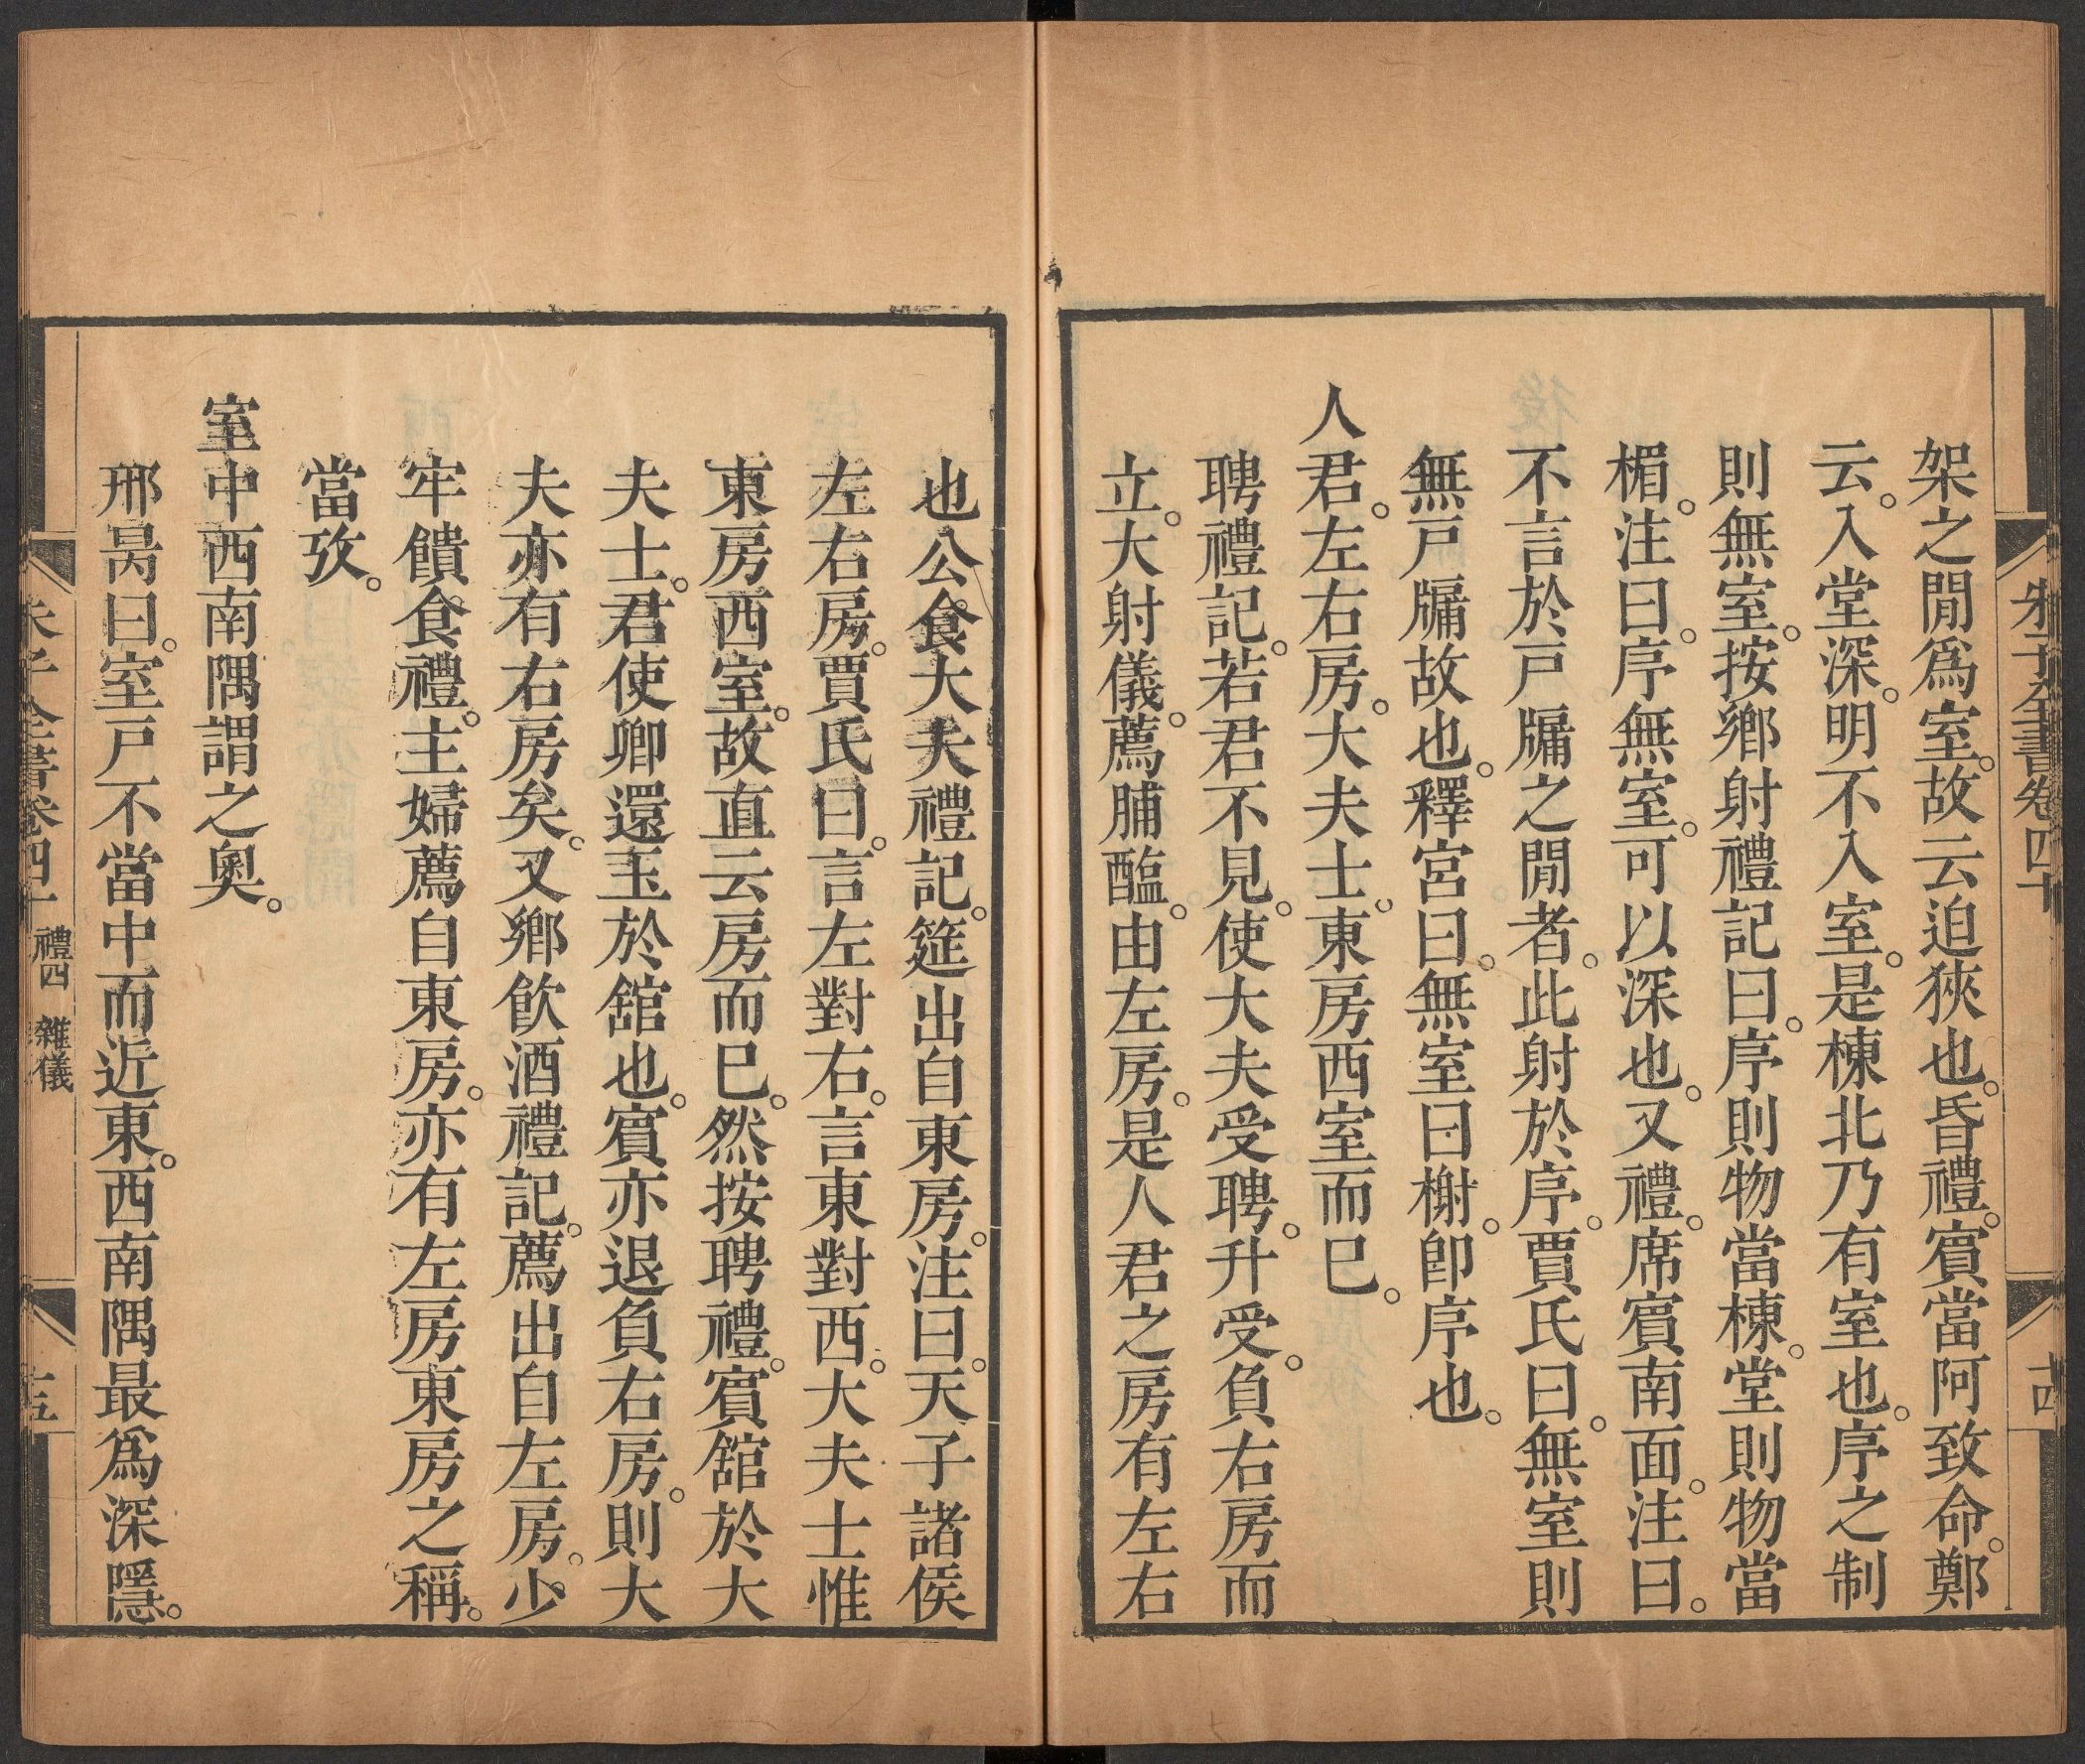 架之閒爲室。故云迫狹也。昏禮。賔當阿致命。鄭
云。入堂深。明不入室。是棟北乃有室也。序之制
則無室。按鄉射禮記曰。序則物當棟。堂則物當
楣。注曰。序無室。可以深也。又禮。席賔南面。注曰。
不言於戸牖之閒者。此射於序。賈氏曰。無室則
無戸牖故也。釋宮曰。無室曰榭。卽序也。
人君。左右房。大夫士。東房西室而已。
聘禮記。若君不見。使大夫受聘。升受。負右房而
立。大射儀。薦脯醢。由左房。是人君之房有左右
也公食大夫禮記。筵出自東房。注曰。天子諸侯
左右房。賈氏曰。言左對右。言東對西。大夫士惟
東房西室。故直云房而已。然按聘禮。賔舘於大
夫士。君使卿還玉於舘也。賔亦退負右房。則大
夫亦有右房矣。又鄉飮酒禮記。薦出自左房。少
牢饋食禮。主婦薦自東房。亦有左房東房之稱。
當攷。
室中西南隅謂之奧。
邢昺曰。室戸不當中而近東。西南隅最爲深隱。
朱子全書卷四十 禮四 雜儀
十五
朱子全書卷四十
十四